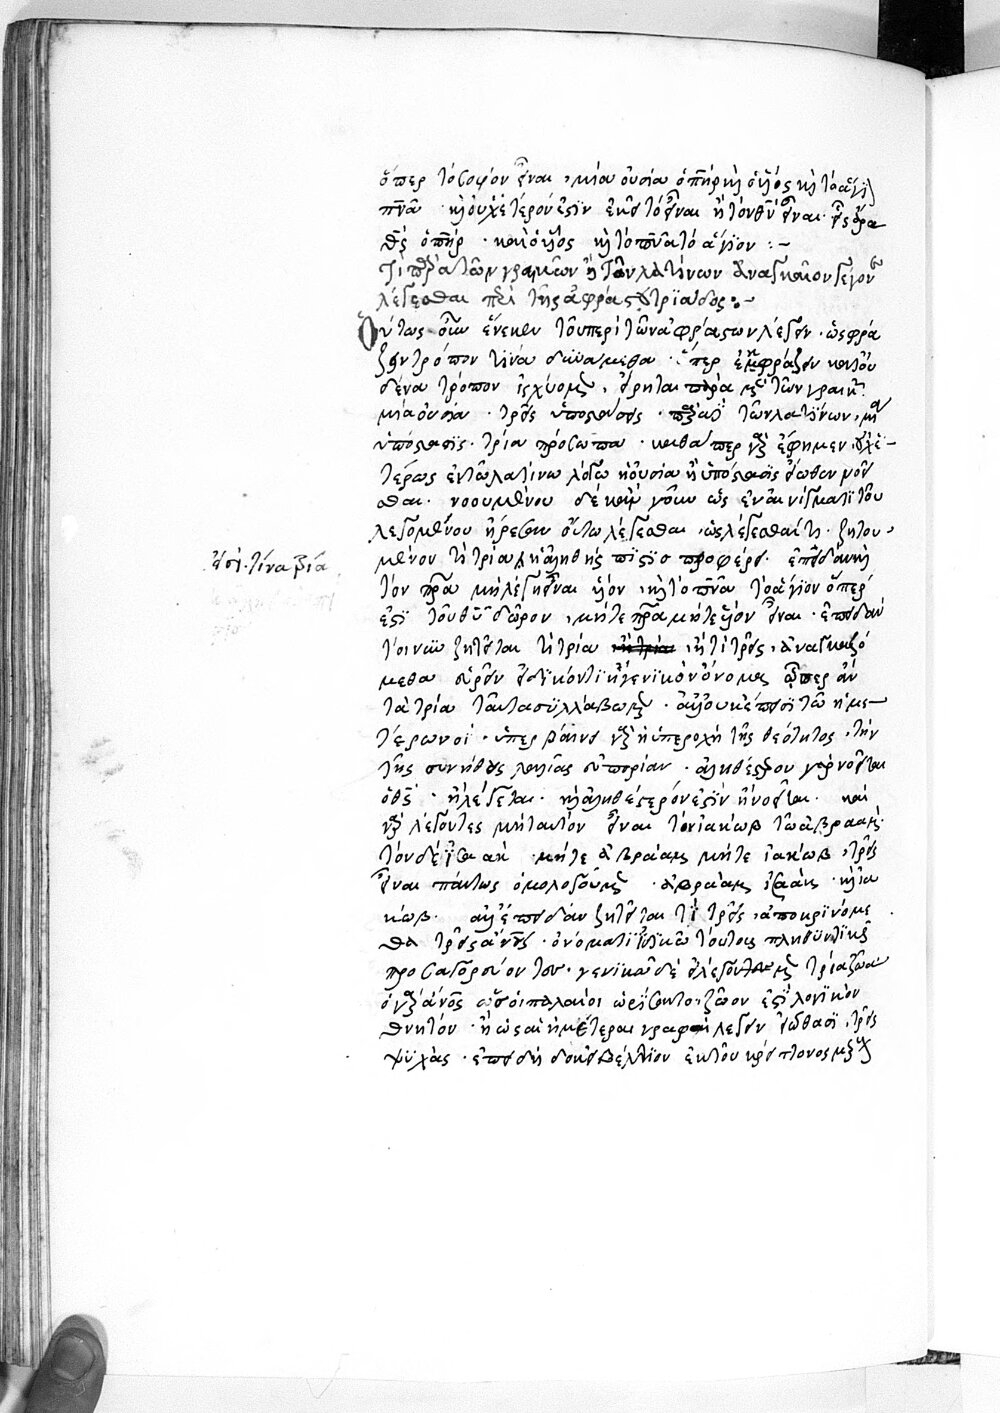 ὅπερ τὸ σοφὸν εἶναι, μία οὐσία ὁ πηρ καὶ ὁ υἱὸς καὶ τὸ ἅγιον
πνα · καὶ οὐχ ἕτερόν ἐστιν ἐκεῖ τὸ εἶναι ἢ τὸ θν εἶναι · εἷς ἄρα
θς ὁ πηρ · καὶ ὁ υἱὸς καὶ τὸ πνα τὸ ἅγιον :~
Τί παρὰ τῶν γραικῶν ἢ τῶν λατίνων ἀναγκαῖον γέγονε
λέγεσθαι περὶ τῆς ἀφράστου τριάδος :~
Οὕτως οὖν ἕνεκεν τοῦ περὶ τῶν ἀφράστων λέγειν · ὡς φρά
ζειν τρόπον τινὰ δυνάμεθα · ἅπερ ἐκφράζειν κατ' οὐ
δένα τρόπον ἰσχύομεν, εἴρηται παρὰ μὲν τῶν γραικῶν
μία οὐσία · τρεῖς ὑποστάσεις · παρὰ δὲ τῶν λατίνων, μία
ὑπόστασις · τρία πρόσωπα · καθάπερ γὰρ ἔφημεν οὐχ ἑ-
τέρως ἐν τῷ λατίνω λόγω ἡ οὐσία ἢ ὑπόστασις εἴωθεν νοεῖ
σθαι. νοουμένου δὲ καὶ γοῦν ὡς ἐν αἰνίγματι τοῦ
λεγομένου ἤρεσεν οὕτω λέγεσθαι, ὡς λέγεσθαί τι · ζητου-
μένου τί τρία ἡ ἀληθὴς πίστις προφέρει · ἐπειδὰν καὶ
τὸν πρα μὴ λέγῃ εἶναι υἱὸν, καὶ τὸ πνα τὸ ἅγιον ὅπερ
ἐστὶ τοῦ θυ δῶρον, μήτε πρα μήτε υἱὸν εἶναι · ἐπειδὰν
τοίνυν ζητεῖται τί τρία καὶ τί τρεῖς, ἀναγκαζό
μεθα εὑρεῖν εἰδικόν τι ἢ γενικὸν ὄνομα, ᾧπερ ἂν
τὰ τρία ταῦτα συλλάβωμεν · ἀλλ' οὐκ ἔπεισι τῶ ἡμε-
τέρω νοΐ · ὑπερβαίνει γὰρ ἡ ὑπεροχὴ τῆς θεότητος, τὴν
τῆς συνήθους λαλίας εὐπορίαν · ἀληθέστερον γὰρ νοεῖται
ὁ θς · ἢ λέγεται · καὶ ἀληθέστερόν ἐστιν ἢ νοεῖται · καὶ
γὰρ λέγοντες μὴ ταυτὸν εἶναι τὸν ἰακὼβ τῶ ἀβραὰμ
τὸν δὲ ἰσαὰκ · μήτε ἀβραὰμ μήτε ἰακὼβ, τρεῖς
εἶναι πάντως ὁμολογοῦμεν · ἀβραὰμ ἰσαὰκ · καὶ ἰα
κώβ · ἀλλ' ἐπειδὰν ζητεῖται τί τρεῖς, ἀποκρινόμε
θα τρεῖς ἀνους · ὀνόματι εἰδικῶ τούτους πληθυντικῶς
προσαγορεύοντες · γενικῶ δὲ εἰ λέγοντες τρία ζῶα
ὁ γὰρ ανος ὡς οἱ παλαιοὶ ὡρίσαντο, ζῶον ἐστὶ λογικὸν
θνητόν · ἢ ὡς αἱ ἡμέτεραι γραφαὶ λέγειν εἴωθασι, τρεῖς
ψυχὰς · ἐπειδὴ δοκεῖ βέλτιον ἐκ τοῦ κρείττονος μέρους